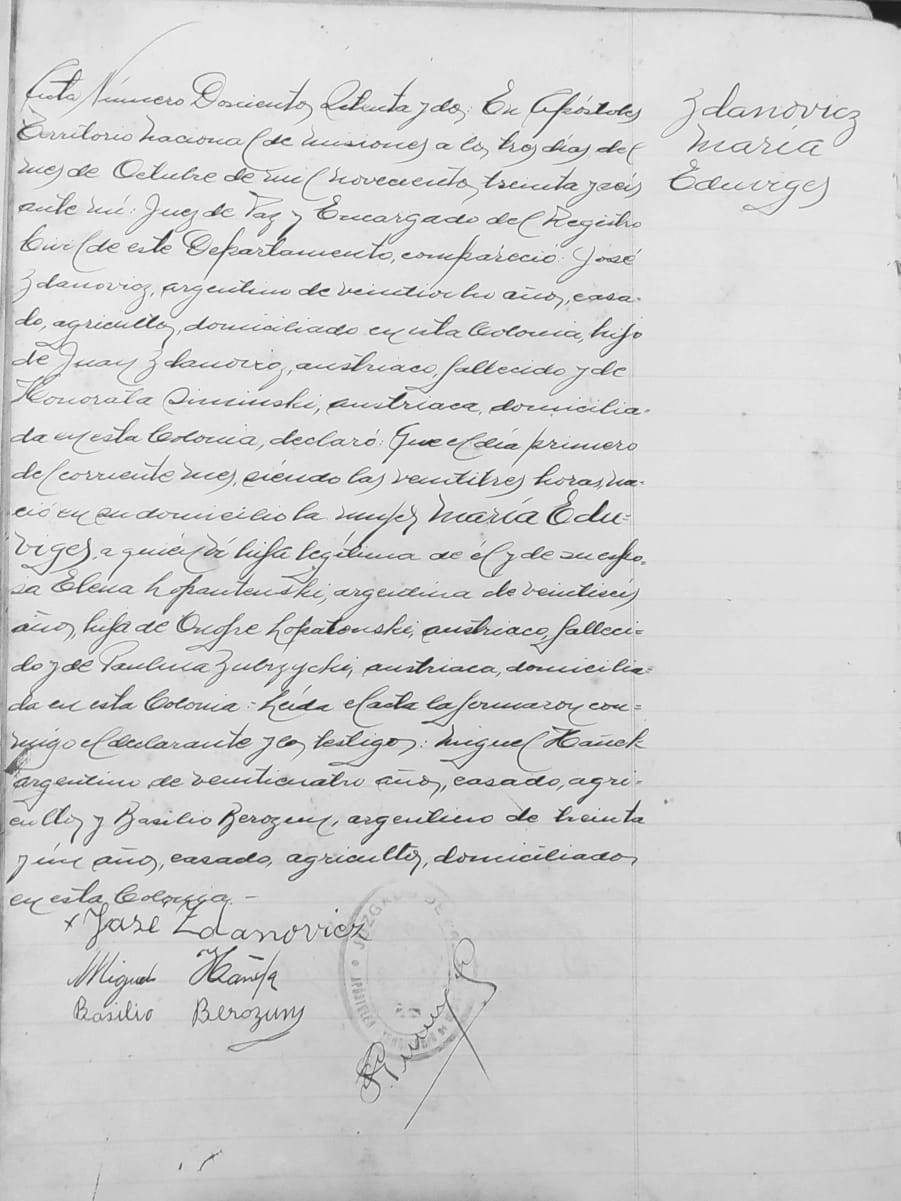 Acta Número Doscientos Setenta y dos: En Apóstoles
Territorio Nacional de Misiones a los tres días del
mes de Octubre de mil novecientos treinta y seis
ante mí: Juez de Paz y Encargado del Registro
Civil de este Departamento, compareció: José
Zdanovicz, argentino de veintiocho años, casa-
do, agricultor, domiciliado en esta Colonia, hijo
de Juan Zdanovicz, austriaco, fallecido y de
Honorata Siminski, austriaca, domicilia-
da en esta Colonia, declaró: Que el día primero
del corriente mes, siendo las veintitres horas, na-
ció en su domicilio la mujer María Edu-
viges, a quién vi hija legítima de él y de su espo-
sa Elena Lopantenski, argentina de veintiseis
años, hija de Onofre Lopatonski, austriaco, falleci-
do y de Paulina Zubrzycki, austriaca, domicilia-
da en esta Colonia: Leída el acta la firmaron con-
migo el declarante y los testigos: Miguel Hañek
argentino de veinticuatro años, casado, agri-
cultor y Basilio Berozuny, argentino de treinta
y un años, casado, agricultor, domiciliados
en esta Colonia.-
x José Zdanovicz
Miguel Hañek
Basilio Berozuny
JUZGADO DE
APÓSTOLES
Zdanovicz
María
Eduviges